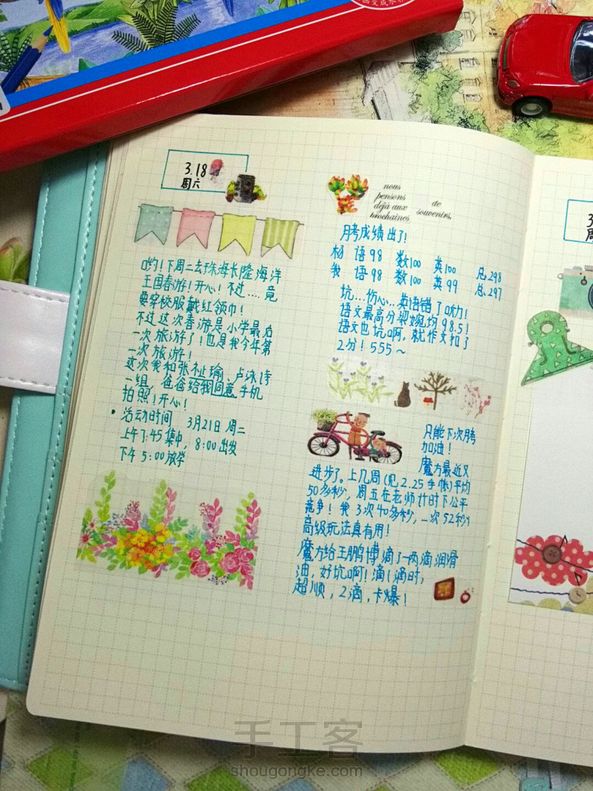 3.18
周六
哟！下周二去珠海长隆海洋
王国春游！开心！不过....竟
要穿校服戴红领巾！
不过这次春游是小学最后
一次旅游了！也是我今年第
一次旅游！
这次我和张祉瑜、卢泳
一组，爸爸给我回意手机
拍照！开心！
• 活动时间 3月21日 周二
上午7:45集中，8:00出发
下午5:00放学
nous
pensons de
déjà aux souvenirs,
prochaines
月考成绩出了！
杨 语98 数100 英100 总298
我 语98 数100 英99 总297
坑…伤心…英语错了
语文最高分 均98.5！
语文也坑啊，就作文扣了
2分！555～
只能下次月考
加油！
魔方最近又
进步了。上几周(见2.25手帐)平均
50多秒，周五在老师计时下公平
竞争！我3次40多秒，一次52秒！
高级玩法真有用！
魔方给王鹏博滴了一两滴润滑
油，好坑啊！滴1滴时，
超顺，2滴，卡爆！
3
周
手工客
shougongke.com